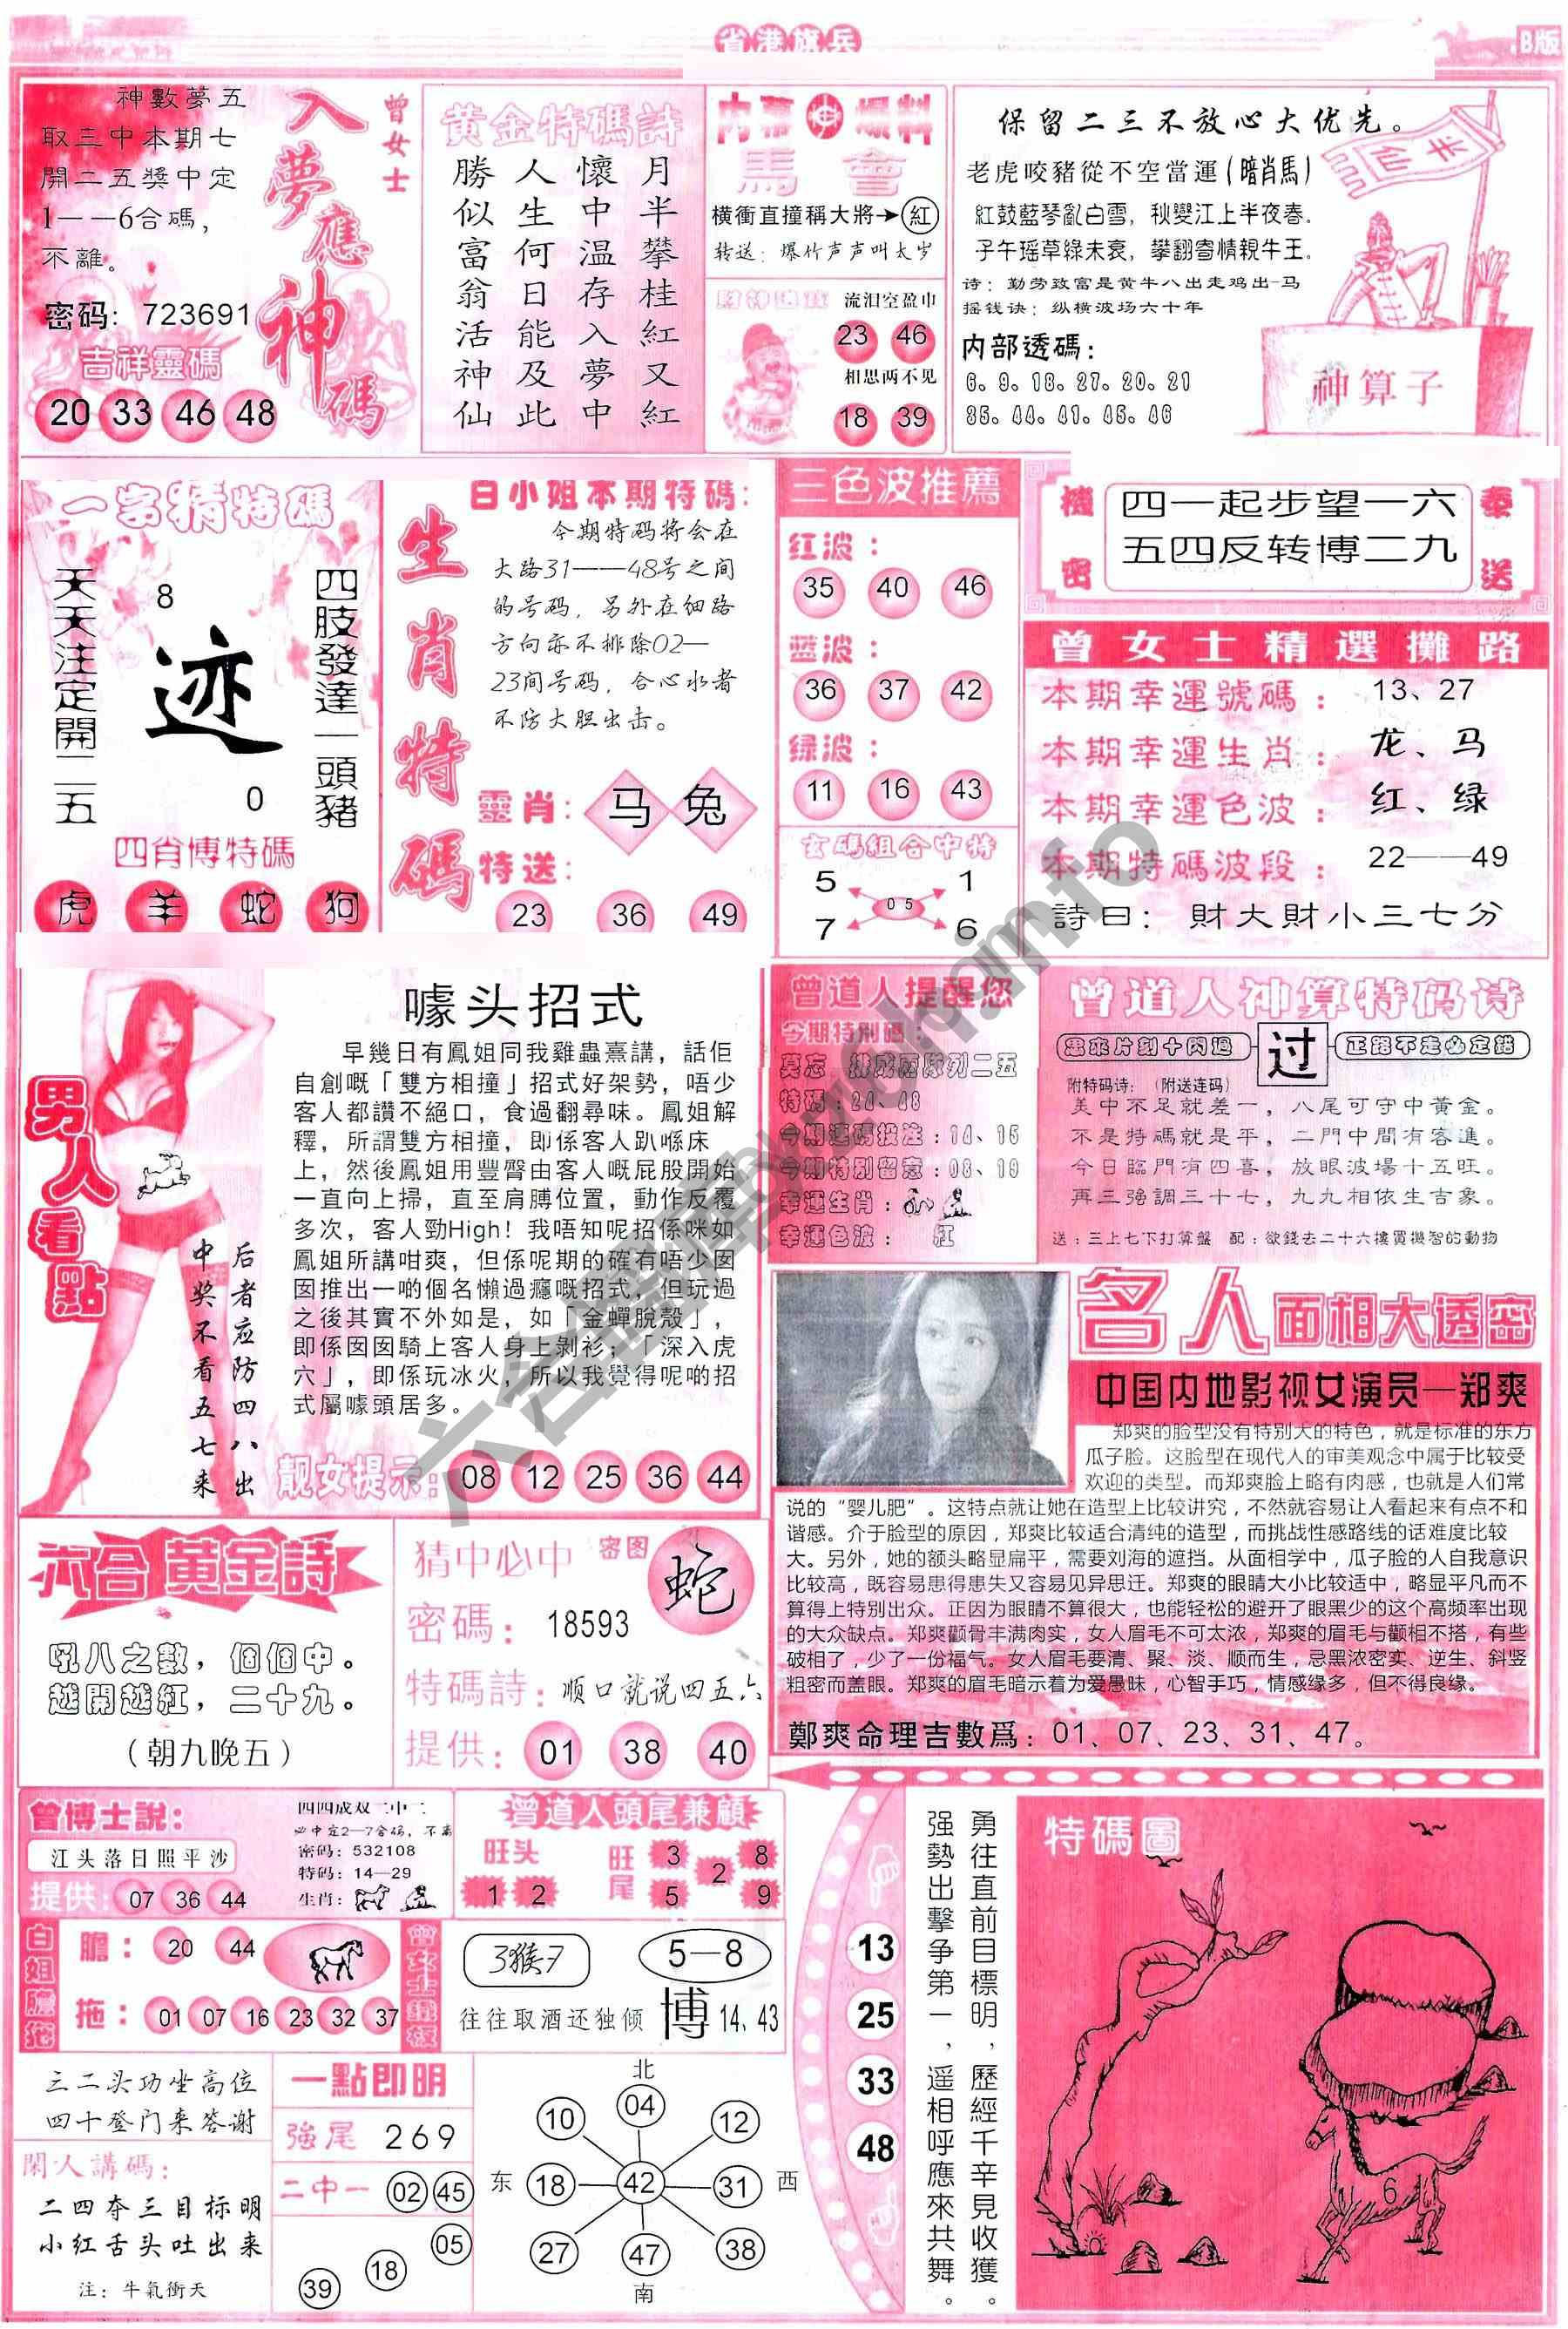 省港旗兵
B版
曾女士
入夢應神碼
神數夢五
取三中本期七
開二五獎中定
1——6合碼，
不離。
密码：723691
吉祥靈碼
20 33 46 48
黄金特碼詩
月半攀桂紅又紅
懷中温存入夢中
人生何日能及此
勝似富翁活神仙
内幕爆料
馬會
橫衝直撞稱大將→紅
转送：爆竹声声叫太岁
流泪空盈巾
23 46
相思两不见
18 39
保留二三不放心大优先。
老虎咬豬從不空當運(暗肖馬)
紅鼓藍琴亂白雪，秋變江上半夜春。
子午瑶草緑未衰，攀翻寄情親牛王。
诗：勤劳致富是黄牛八出走鸡出-马
摇钱诀：纵横波场六十年
内部透碼：
6。9。18。27。20。21
35。44。41。45。46
半仙
神算子
一字猜特碼
四肢發達一頭豬
8
迹
0
天天注定開二五
四肖博特碼
虎 羊 蛇 狗
生肖特碼
白小姐本期特碼：
今期特码将会在
大路31——48号之间
的号码，另外在细路
方向亦不排除02—
23间号码，合心水者
不防大胆出击。
靈肖：马 兔
特送：
23 36 49
三色波推薦
红波：
35 40 46
蓝波：
36 37 42
绿波：
11 16 43
玄碼組合中特
5 1
05
7 6
機密
奉送
四一起步望一六
五四反转博二九
曾女士精選攤路
本期幸運號碼：13、27
本期幸運生肖：龙、马
本期幸運色波：红、绿
本期特碼波段：22——49
詩曰：財大財小三七分
男人看點
后者应防四八出
中奖不看五七来
噱头招式
早幾日有鳳姐同我雞蟲熹講，話佢
自創嘅「雙方相撞」招式好架勢，唔少
客人都讚不絕口，食過翻尋味。鳳姐解
釋，所謂雙方相撞，即係客人趴喺床
上，然後鳳姐用豐臀由客人嘅屁股開始
一直向上掃，直至肩膊位置，動作反覆
多次，客人勁High！我唔知呢招係咪如
鳳姐所講咁爽，但係呢期的確有唔少囡
囡推出一啲個名懶過癮嘅招式，但玩過
之後其實不外如是，如「金蟬脫殼」，
即係囡囡騎上客人身上剝衫；「深入虎
穴」，即係玩冰火，所以我覺得呢啲招
式屬噱頭居多。
靓女提示：08 12 25 36 44
曾道人提醒您
今期特别碼
特码：24、48
今期連碼投注：14、15
今期特别留意：08、19
幸運生肖：
幸運色波： 紅
曾道人神算特码诗
思來片刻十閃過
过
正路不走必定錯
附特码诗：（附送连码）
美中不足就差一，八尾可守中黃金。
不是特碼就是平，二門中間有客進。
今日臨門有四喜，放眼波場十五旺。
再三強調三十七，九九相依生吉象。
送：三上七下打算盤 配：欲錢去二十六樓買機智的動物
名人面相大透密
中国内地影视女演员—郑爽
郑爽的脸型没有特别大的特色，就是标准的东方
瓜子脸。这脸型在现代人的审美观念中属于比较受
欢迎的类型。而郑爽脸上略有肉感，也就是人们常
说的“婴儿肥”。这特点就让她在造型上比较讲究，不然就容易让人看起来有点不和
谐感。介于脸型的原因，郑爽比较适合清纯的造型，而挑战性感路线的话难度比较
大。另外，她的额头略显扁平，需要刘海的遮挡。从面相学中，瓜子脸的人自我意识
比较高，既容易患得患失又容易见异思迁。郑爽的眼睛大小比较适中，略显平凡而不
算得上特别出众。正因为眼睛不算很大，也能轻松的避开了眼黑少的这个高频率出现
的大众缺点。郑爽颧骨丰满肉实，女人眉毛不可太浓，郑爽的眉毛与颧相不搭，有些
破相了，少了一份福气。女人眉毛要清、聚、淡、顺而生，忌黑浓密实、逆生、斜竖
粗密而盖眼。郑爽的眉毛暗示着为爱愚昧，心智手巧，情感缘多，但不得良缘。
鄭爽命理吉數爲：01、07、23、31、47。
六合黄金詩
吼八之數，個個中。
越開越紅，二十九。
（朝九晚五）
猜中必中 密图
蛇
密碼：18593
特碼詩：顺口就说四五六
提供：01 38 40
曾博士說：
江头落日照平沙
提供：07 36 44
四四成双二中二
必中定2—7合码，不离
密码：532108
特码：14—29
生肖：
曾道人頭尾兼顧
旺头
1 2
旺尾
3 8
2
5 9
白姐膽拖
膽：20 44
拖：01 07 16 23 32 37
3猴7
5—8
往往取酒还独倾
博14、43
三二头功坐高位
四十登门来答谢
閑人講碼：
二四夺三目标明
小红舌头吐出来
注：牛氣衝天
一點即明
強尾 269
二中一 02 45
05
18
39
北
10 04 12
东 18 42 31 西
27 47 38
南
13
25
33
48
勇往直前目標明，歷經千辛見收獲。
强勢出擊争第一，遥相呼應來共舞。
特碼圖
6